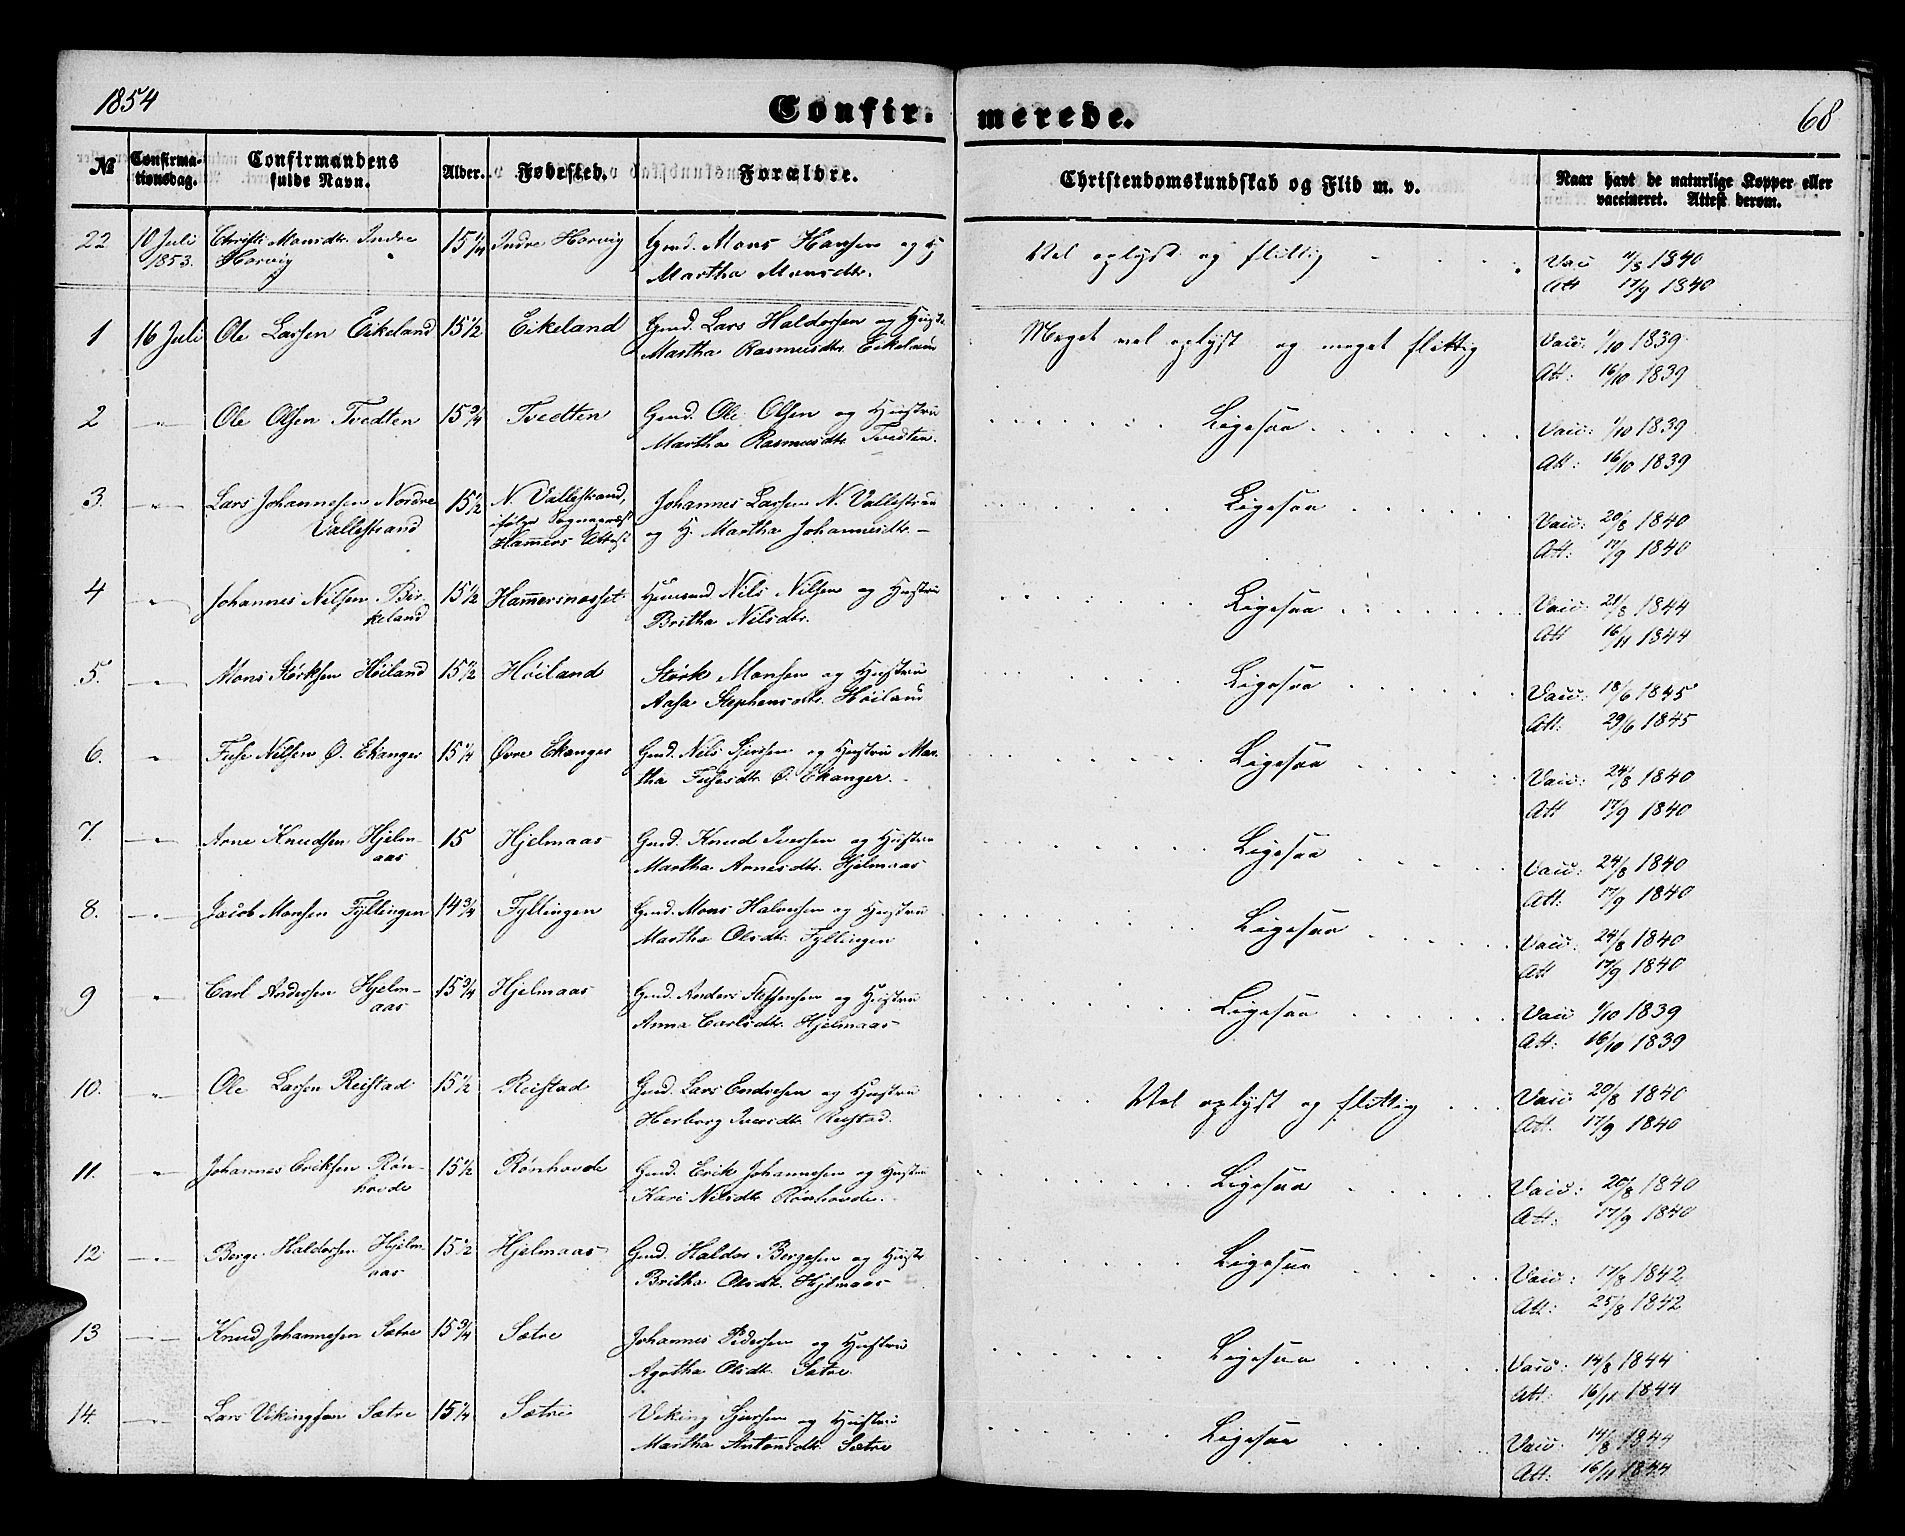 1854
Confir- merede.
68
№ Confirma- tionsdag. Confirmandens fulde Navn. Alder. Fødested. Forældre. Christendomskundskab og Flid m. v. Naar havt de naturlige Kopper eller vaccineret. Attest derom.
22 10 Juli Christi Monsdtr. Indre 15 1/4 Indre Horvig Gmd. Mons Hansen og H. Vel oplyst og flittig Vac 11/8 1840
1853. Horvig Martha Monsdtr. Att 17/9 1840
1 16 Juli Ole Larsen Eikeland 15 1/2 Eikeland Gmd. Lars Haldorsen og Hustr Meget vel oplyst og meget flittig Vacc: 1/10 1839
Martha Rasmusdtr. Eikeland Att: 16/10 1839
2 -"- Ole Olsen Tvedten 15 3/4 Tvedten Gmd. Ole Olsen og Hustru Ligesaa Vacc: 1/10 1839
Martha Rasmusdtr. Tvedten. Att: 16/10 1839
3. -"- Lars Johannesen Nordre 15 1/2 N. Vallestrand, Johannes Larsen N. Vallestran Ligesaa Vacc: 20/8 1840
Vallestrand ifølge Sognepræst og H. Martha Johannesdtr. Att: 17/9 1840
Hammers Attest
4 -"- Johannes Nilsen Bir- 15 1/2 Hamersnæsset Huusmd Nils Nilsen og Hustru Ligesaa Vacc: 21/8 1844
keland Britha Nilsdtr. Att 16/11 1844
5. -"- Mons Størksen Høiland 15 1/2 Høiland Størk Monsen og Hustru Ligesaa Vacc: 18/6 1845
Aasa Stephensdtr. Høiland Att: 29/6 1845
6. " Fuse Nilsen Ø. Ekanger 15 1/4 Øvre Ekanger Gmd. Nils Sjursen og Hustru Mar- Ligesaa Vacc: 24/8 1840
tha Fusesdtr. Ø. Ekanger. Att 17/9 1840
7. -"- Arne Knudsen Hjelm- 15 Hjelmaas Gmd. Knud Iversen og Hustru Ligesaa Vacc: 24/8 1840
aas Martha Arnesdtr. Hjelmaas Att: 17/9 1840
8. -"- Jacob Monsen Fyllingen 14 3/4 Fyllingen Gmd. Mons Halvorsen og Hustru Ligesaa Vacc: 24/8 1840
Martha Olsdtr. Fyllingen Att 17/9 1840
9 " Carl Andersen Hjelm- 15 3/4 Hjelmaas Gmd. Anders Steffensen og Hustru Ligesaa Vacc 1/10 1839
aas Anna Carlsdtr. Hjelmaas Att: 16/10 1839
10. -"- Ole Larsen Reistad 15 1/2 Reistad Gmd. Lars Endresen og Hustru Vel oplyst og flittig Vacc 20/8 1840
Herborg Iversdtr. Reistad. Att. 17/9 1840
11. " Johannes Eriksen Røn- 15 1/2 Rønhovde Gmd. Erik Johannesen og Hustru Ligesaa Vacc: 20/8 1840
hovde Kari Nilsdtr. Rønhovde. Att: 17/9 1840
12 -"- Berge Haldorsen Hjelm- 15 1/2 Hjelmaas Gmd. Haldor Bergesen og Hustr Ligesaa Vacc: 17/8 1842
aas Britha Olsdtr. Hjelmaas Att: 25/8 1842
13 -"- Knud Johannesen Sætre 15 3/4 Sætre Johannes Pedersen og Hustru Ligesaa Vacc: 14/8 1844
Agatha Olsdtr. Sætre. Att: 16/11 1844
14. -"- Lars Vikingsen Sætre 15 1/4 Sætre Viking Sjursen og Hustru Ligesaa Vacc: 14/8 1844
Martha Antonsdtr. Sætre Att: 16/11 1844